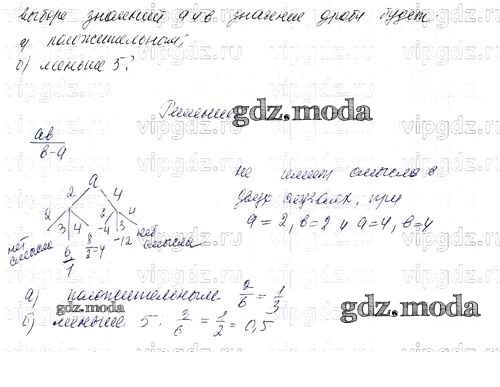 выборе значений a и b значение дроби будет
а) положительным;
б) меньше 5?
Решение
gdz.moda
ab
b-a
a
2 4
2 3 4 3 4
нет смысла 6/1 8/2=4 -4 -12 нет смысла
не имеет смысла в
двух случаях, при
a=2, b=2 и a=4, b=4
а) положительным 2/6 = 1/3
gdz.moda
б) меньше 5. 3/6 = 1/2 = 0,5
gdz.moda